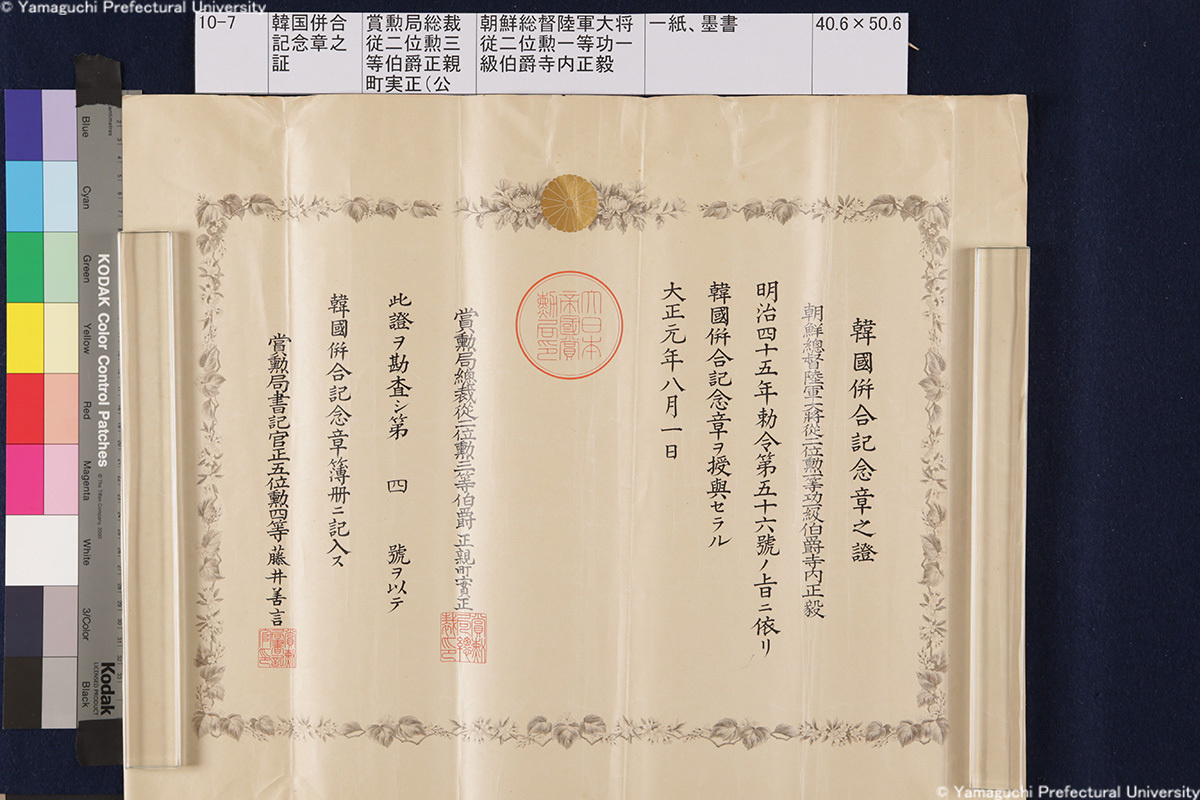 © Yamaguchi Prefectural University
10-7
韓国併合
記念章之
証
賞勲局総裁
従二位勲三
等伯爵正親
町実正（公
朝鮮総督陸軍大将
従二位勲一等功一
級伯爵寺内正毅
一紙、墨書
40.6×50.6
韓國倂合記念章之證
朝鮮總督陸軍大將從二位勲一等功一級伯爵寺内正毅
明治四十五年勅令第五十六號ノ旨ニ依リ
韓國倂合記念章ヲ授與セラル
大正元年八月一日
大日本
帝國賞
勲局印
賞勲局總裁從二位勲三等伯爵正親町實正
賞勲
局總
裁印
此證ヲ勘査シ第四號ヲ以テ
韓國倂合記念章簿册ニ記入ス
賞勲局書記官正五位勲四等藤井善言
KODAK Color Control Patches
© The Tiffen Company, 2000
Blue
Cyan
Green
Yellow
Red
Magenta
White
3/Color
Black
Kodak
LICENSED PRODUCT
© Yamaguchi Prefectural University